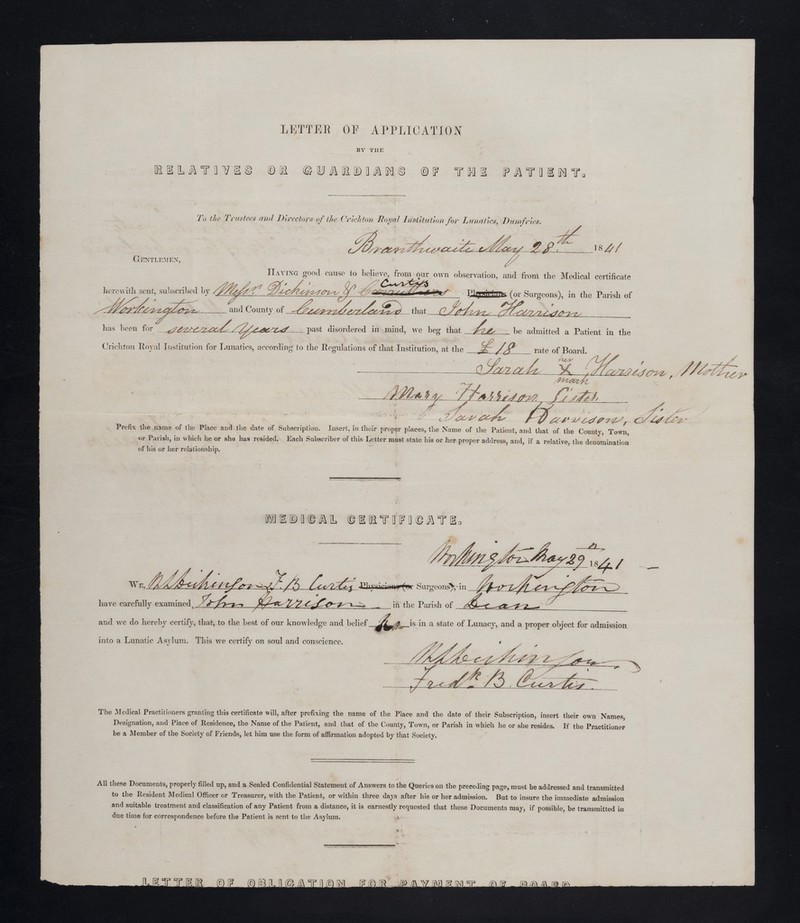 LETTER OF APPLICATION
BY THE
RELATIVES OR GUARDIANS OF THE PATIENT.
To the Trustees and Directors of the Crichton Royal Institution for Lunatics, Dumfries.
Branthwaite May 28th 1841
GENTLEMEN,
HAVING good cause to believe, from our own observation, and from the Medical certificate
Curtis
herewith sent, subscribed by Messrs Dickinson & Physicians (or Surgeons), in the Parish of
Workington and County of Cumberland that John Harrison
has been for several Years past disordered in mind, we beg that he be admitted a Patient in the
Crichton Royal Institution for Lunatics, according to the Regulations of that Institution, at the £18 rate of Board.
her
Sarah X Harrison, Mother
mark
Mary Harrison Sister
Sarah Harrison, Sister
Prefix the name of the Place and the date of Subscription. Insert, in their proper places, the Name of the Patient, and that of the County, Town,
or Parish, in which he or she has resided. Each Subscriber of this Letter must state his or her proper address, and, if a relative, the denomination
of his or her relationship.
MEDICAL CERTIFICATE.
Workington May 29th 1841
WE, Dickinson & F. B. Curtis Physicians (or Surgeons), in Workington
have carefully examined, John Harrison in the Parish of Dean
and we do hereby certify, that, to the best of our knowledge and belief he is in a state of Lunacy, and a proper object for admission
into a Lunatic Asylum. This we certify on soul and conscience.
Dickinson.
Fredk B. Curtis.
The Medical Practitioners granting this certificate will, after prefixing the name of the Place and the date of their Subscription, insert their own Names,
Designation, and Place of Residence, the Name of the Patient, and that of the County, Town, or Parish in which he or she resides. If the Practitioner
be a Member of the Society of Friends, let him use the form of affirmation adopted by that Society.
All these Documents, properly filled up, and a Sealed Confidential Statement of Answers to the Queries on the preceding page, must be addressed and transmitted
to the Resident Medical Officer or Treasurer, with the Patient, or within three days after his or her admission. But to insure the immediate admission
and suitable treatment and classification of any Patient from a distance, it is earnestly requested that these Documents may, if possible, be transmitted in
due time for correspondence before the Patient is sent to the Asylum.
LETTER OF OBLIGATION FOR PAYMENT OF BOARD